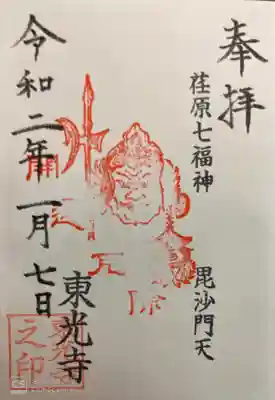 奉拝
荏原七福神
毘沙門天
令和二年一月七日
東光寺
之印